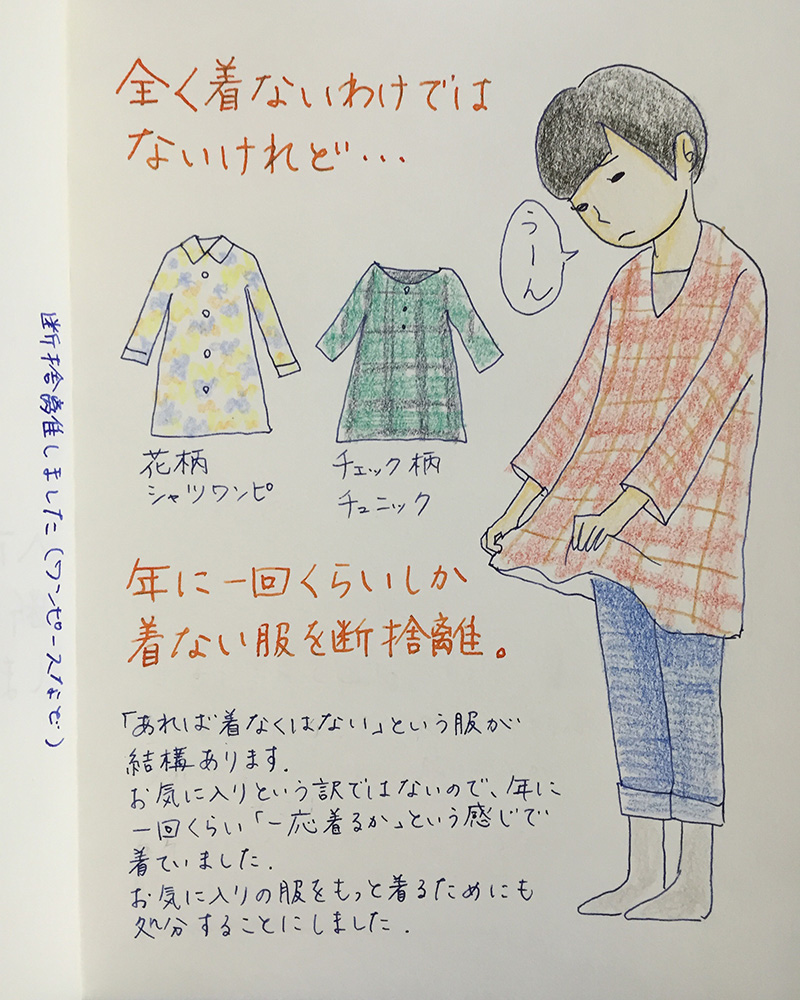 全く着ないわけでは
ないけれど・・・
うーん
花柄
シャツワンピ
チェック柄
チュニック
年に一回くらいしか
着ない服を断捨離。
「あれば着なくはない」という服が
結構あります.
お気に入りという訳ではないので、年に
一回くらい「一応着るか」という感じで
着ていました.
お気に入りの服をもっと着るためにも
処分することにしました.
断捨離しました(ワンピースなど)